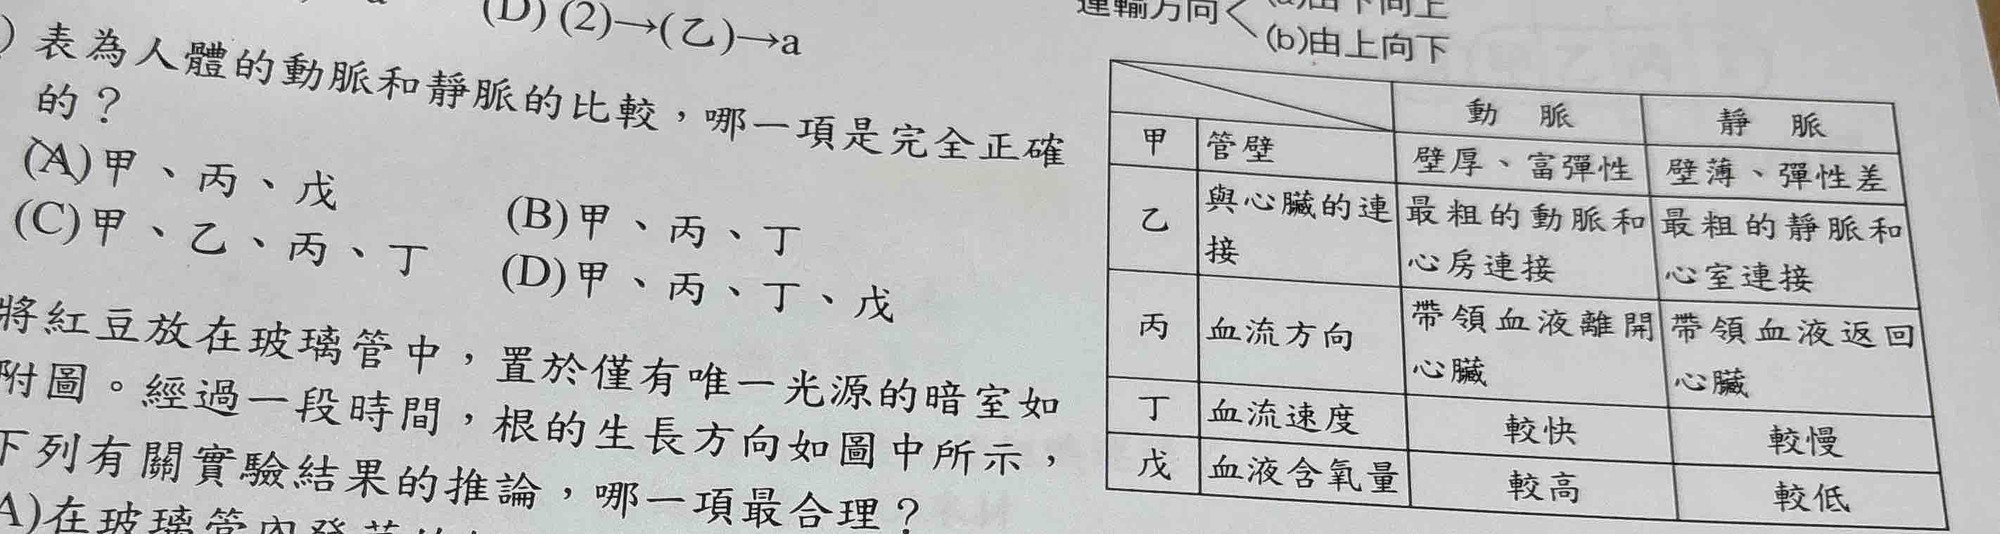 (D)(2)→(乙)→a
)表為人體的動脈和靜脈的比較，哪一項是完全正確
的？
(A)甲、丙、戊
(B)甲、丙、丁
(C)甲、乙、丙、丁
(D)甲、丙、丁、戊
將紅豆放在玻璃管中，置於僅有唯一光源的暗室如
附圖。經過一段時間，根的生長方向如圖中所示，
下列有關實驗結果的推論，哪一項最合理？
A)在玻璃管內發芽的
運輸方向
(a)由下向上
(b)由上向下
動 脈 靜 脈
甲 管壁 壁厚、富彈性 壁薄、彈性差
乙 與心臟的連 最粗的動脈和 最粗的靜脈和
接 心房連接 心室連接
丙 血流方向 帶領血液離開 帶領血液返回
心臟 心臟
丁 血流速度 較快 較慢
戊 血液含氧量 較高 較低